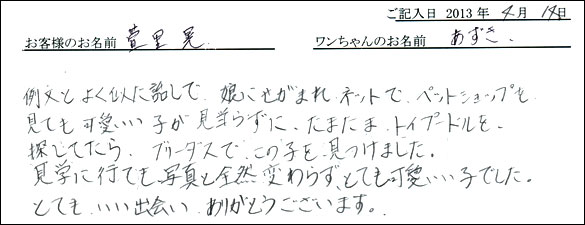 ご記入日 2013年 4月 14日
お客様のお名前 萱里 晃 ワンちゃんのお名前 あずき.
例文とよく似た話しで、娘にせがまれ ネットで、ペットショップも、
見ても可愛いい子が見当らずに、たまたま、トイプードルを、
探してたら、ブリーダスで、この子を、見つけました。
見学に行ても、写真と全然変わらず、とても可愛いい子でした。
とても、いい出会い、ありがとうございます。